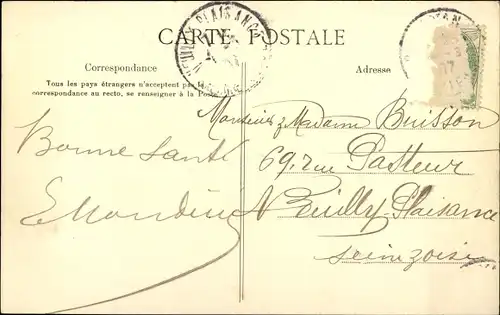 CARTE POSTALE
Correspondance
Tous les pays étrangers n'acceptent pas la
correspondance au recto, se renseigner à la Poste
Bonne Santé
Adresse
Monsieur & Madame Buisson
69, rue Pasteur
Neuilly-Plaisance
seine & oise